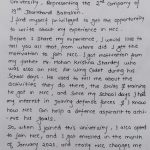 University. Representing the 2nd company of
19th Jharkhand Battalion.
I find myself privileged to get the opportunity
to write about my experience in NCC.
Before I share my experience I would like to
tell you that from where did I get the
motivation to join NCC. I got inspiration from
my father Mr Mohan Krishna Shandey who
was also an NCC Air Wing Cadet during his
School days. He used to tell me about the
activities they do there, the training
he got in NCC, and since my School days I had
an interest in joining defence forces & I know
how NCC can help a defence aspirant to achi-
-eve his goals.
So, when I joined this University, I also opted
to join NCC, and I got enrolled in the month
of January 2021, and really NCC changes me